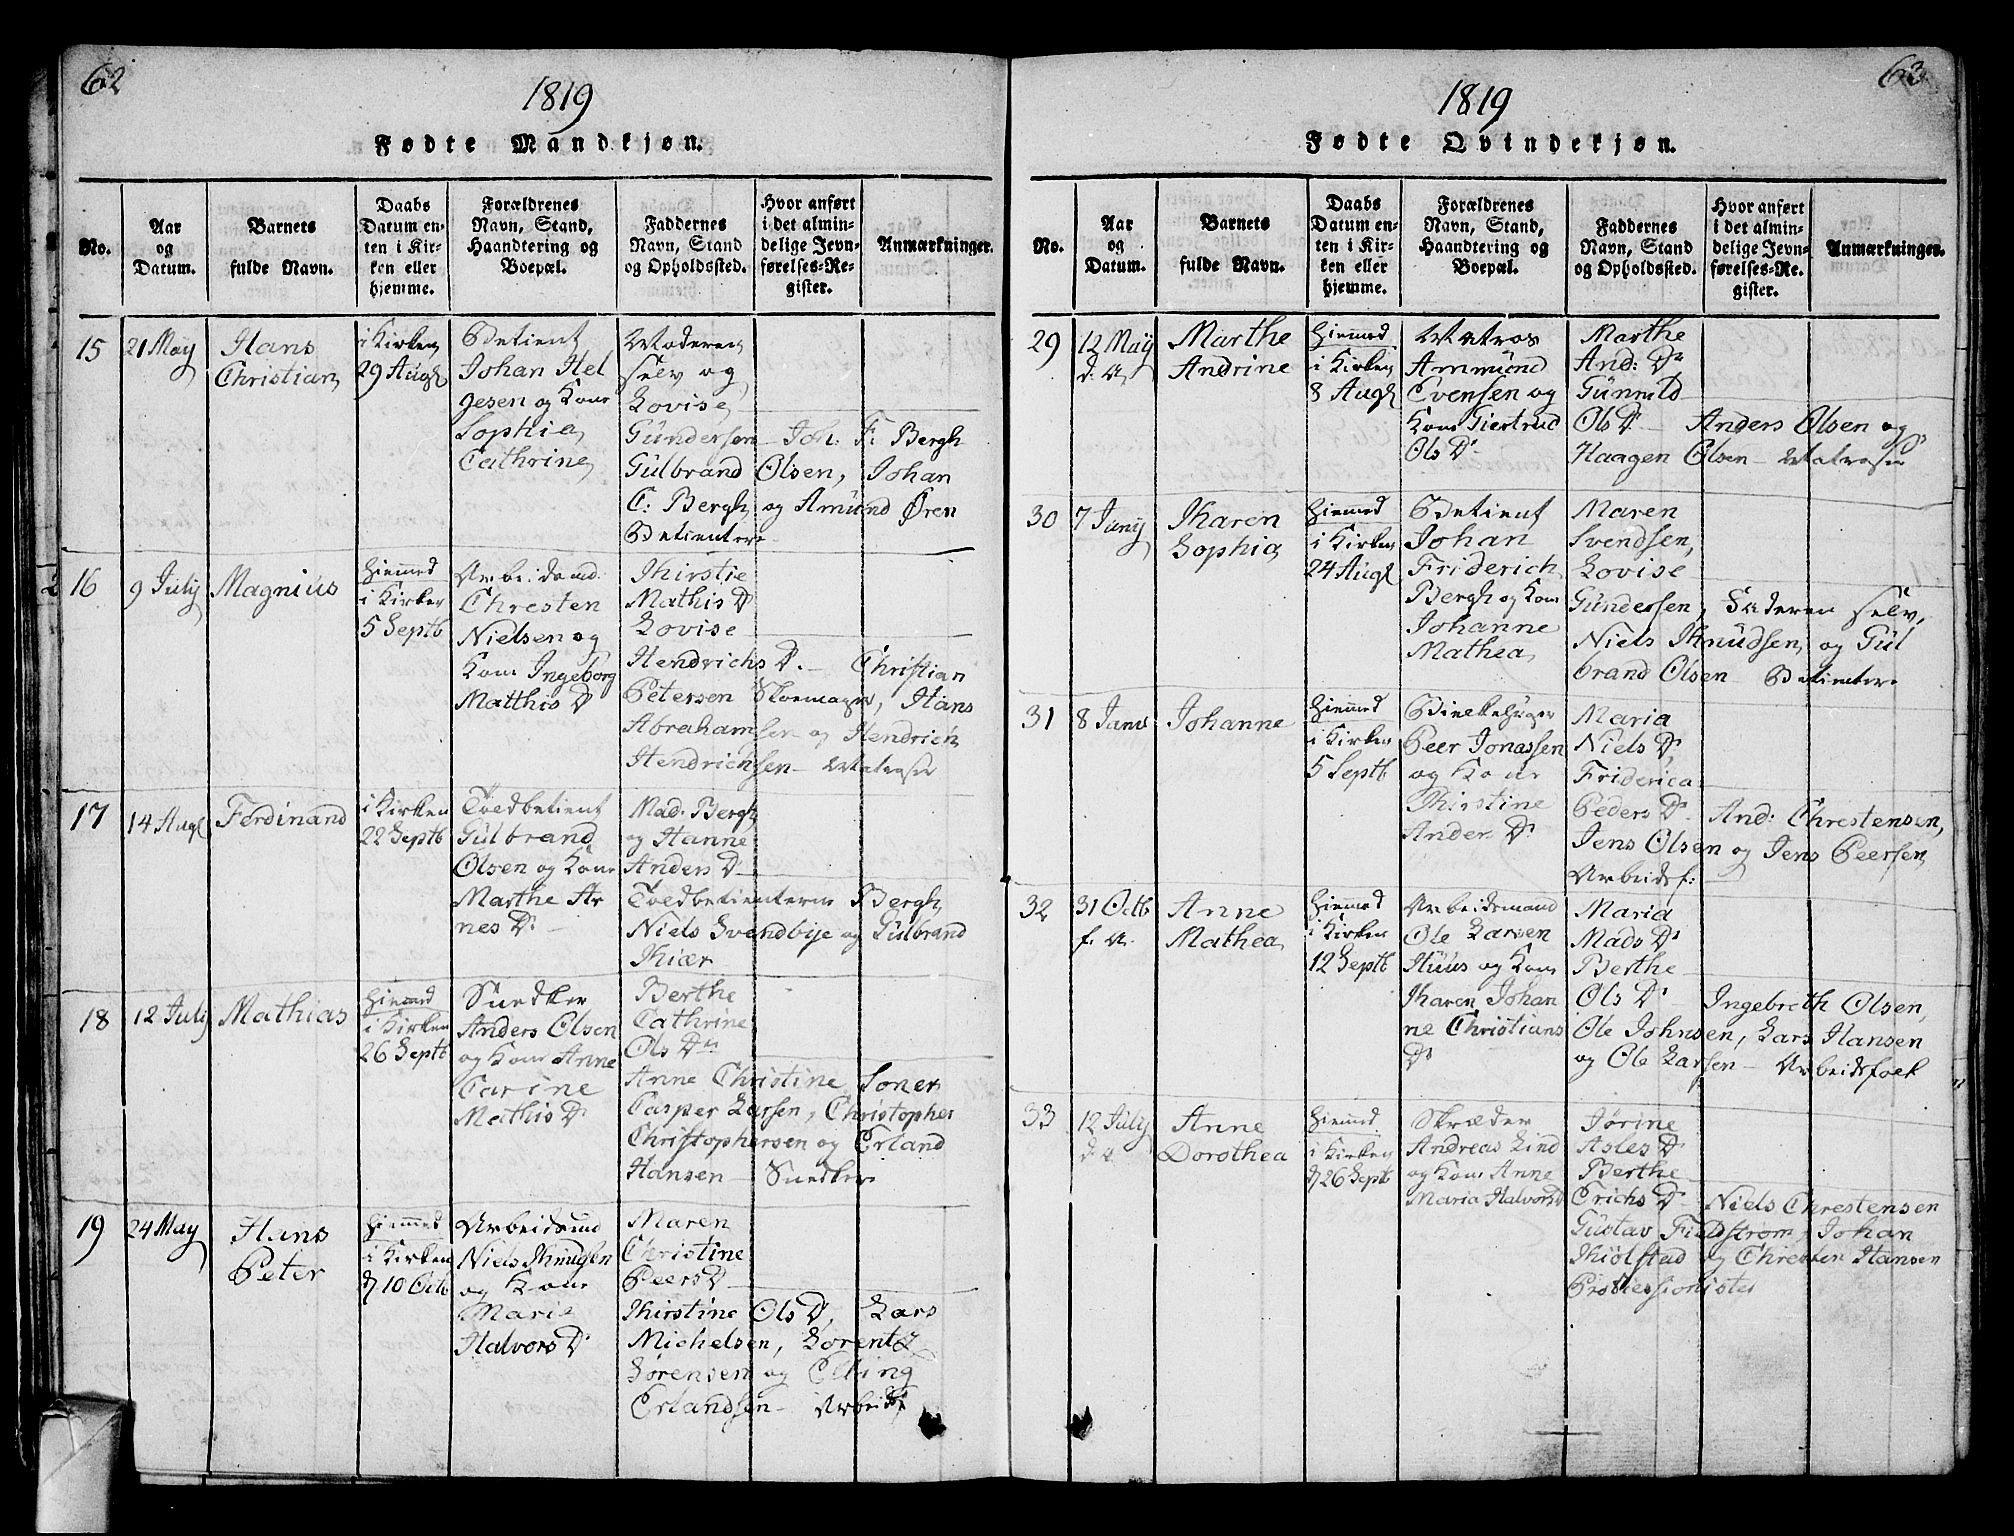 62
1819
Fødte Mandkjøn.
No.
Aar
og
Datum.
Barnets
fulde Navn.
Daabs
Datum en-
ten i Kir-
ken eller
hjemme.
Forældrenes
Navn, Stand,
Haandtering og
Boepæl.
Faddernes
Navn, Stand
og Opholdssted.
Hvor anført
i det almin-
delige Jevn-
førelses-Re-
gister.
Anmærkninger.
15
21 May
Hans
Christian
i Kirken
29 Augt
Betient
Johan Hel
gesen og Kone
Sophia
Cathrine
Moderen
selv og
Lovise
Gundersen — Joh: F: Bergh
Gulbrand Olsen, Johan
C: Bergh og Amund Øren
Betientere
16
9 July
Magnius
Hiemmed
i Kirken
5 Septb
Arbeidsmd:
Chresten
Nielsen og
Kone Ingeborg
Matthis Dr
Khirstie
Mathis Dr
Lovise
Hendrichs Dr. — Christian
Petersen Skoemager, Hans
Abrahamsen og Hendrich
Hendrichsen — Matroser
17
14 Augt
Ferdinand
i Kirken
22 Septb
Toldbetient
Gulbrand
Olsen og Kone
Marthe Ar
nes Dr —
Mad. Bergh
og Hanne
Anders Dr
Toldbetienterne Bergh
Niels Svendbye og Gulbrand
Khiær
18
12 July
Mathias
Hiemmed
i Kirken
26 Septb
Snedker
Anders Olsen
og Kone Anne
Carine
Mathis Dr
Berthe
Cathrine
Ols Dr
Anne Christine Soner
Casper Larsen, Christopher
Christophersen og Erland
Hansen — Snedker
19
24 May
Hans
Peter
Hiemmed
i Kirken
d 10 Octb
Arbeidsmd
Niels Knudsen
og Kone
Marie
Halvors Dr
Maren
Christine
Peers Dr
Khirstine Ols Dr, Lars
Michelsen, Lorentz
Sørensen og Elling
Erlandsen — Arbeidsf
63
1819
Fødte Qvindekjøn.
No.
Aar
og
Datum.
Barnets
fulde Navn.
Daabs
Datum en-
ten i Kir-
ken eller
hjemme.
Forældrenes
Navn, Stand,
Haandtering og
Boepæl.
Faddernes
Navn, Stand
og Opholdssted.
Hvor anført
i det almin-
delige Jevn-
førelses-Re-
gister.
Anmærkninger.
29
12 May
d. A.
Marthe
Andrine
Hiemmed
i Kirken
8 Augt
Matros
Ammund
Evensen og
Kone Giertrud
Ols Dr
Marthe
And: Dr
Gunnild
Ols Dr — Anders Olsen og
Haagen Olsen — Matroser
30
7 Juny
Kharen
Sophia
Hiemmed
i Kirken
24 Augt
Betient
Johan
Friderich
Bergh og Kone
Johanne
Mathea
Maren
Svendsen,
Lovise
Gundersen, Faderen selv,
Niels Knudsen, og Gul
brand Olsen — Betientere
31
8 Janv
Johanne
Hiemmed
i Kirken
5 Septb
Bielkehuger
Peer Jonassen
og Kone
Khirstine
Anders Dr
Maria
Niels Dr
Friderica
Peders Dr. And: Chrestensen,
Jens Olsen og Jens Peersen,
Arbeidsf:
32
31 Octb
f. A.
Anne
Mathea
Hiemmed
i Kirken
12 Septb
Arbeidsmand
Ole Larsen
Huus og Kone
Kharen Johan
ne Christians
Dr
Maria
Mads Dr
Berthe
Ols Dr Ingebreth Olsen,
Ole Johnsen, Lars Hansen
og Ole Larsen — Arbeidsfolk
33
12 July
d. A.
Anne
Dorothea
Hiemmed
i Kirken
d 26 Septb
Skræder
Andreas Lind
og Kone Anne
Maria Halvors Dr
Jørine
Asles Dr
Berthe
Erichs Dr Niels Chrestensen
Gustav Fieldstrøm, Johan
Khiølstad og Chresten Hansen
Professionister